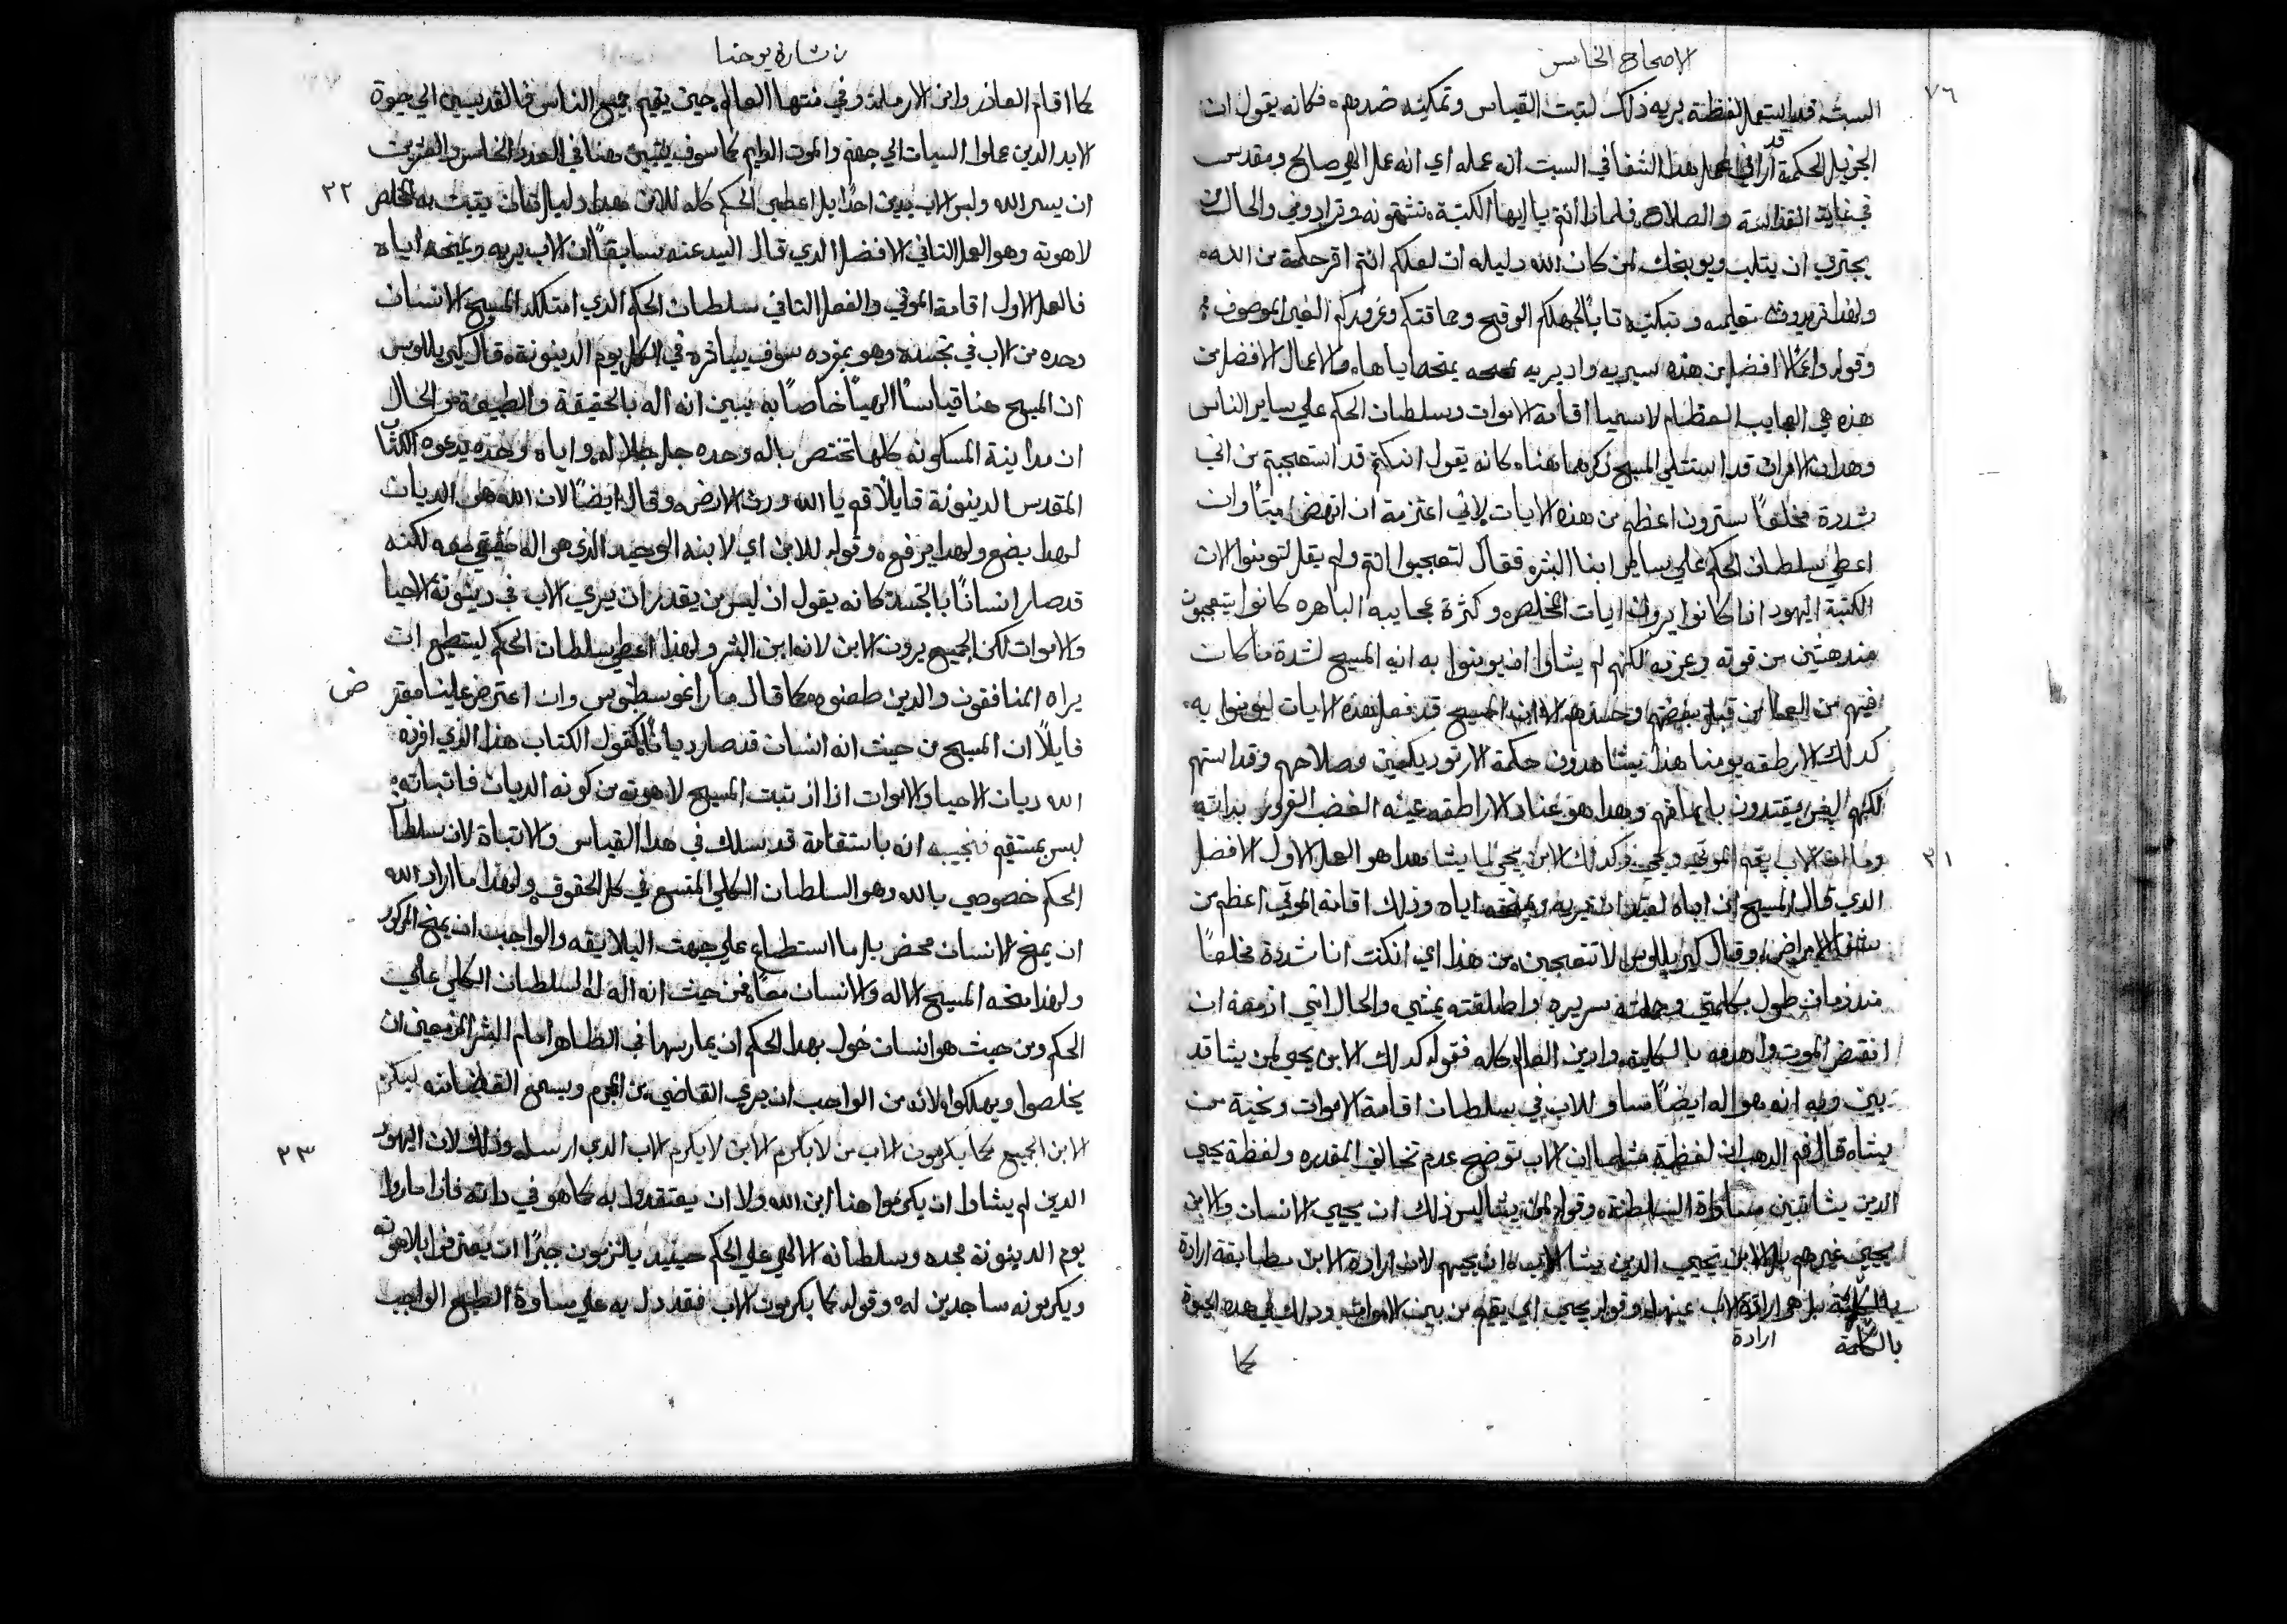 الاصحاح الخامس
٧٦
السبت قد استعمل لفظة يريه ذلك لتبت القياس وتمكينه ضدهم فكانه يقول ان
الجزيل الحكمة قد اراني اعمل هذا الشفا في السبت انه عمله اي انه عمل الهي صالح ومقدس
في غاية القداسة والصلاح فلماذا انتم يا ايها الكتبة تشتمونه وترادوني والحال من
يجتري ان يتلب ويوبخك لمن كان الله دليله ان لعلكم انتم اقر حكمة من الله
ولهذا تريدون تعليمه وتبكيته تابًا لجهلكم الوقيح وحماقتكم وغروركم الغير الموصوف
وقوله واعمالا افضل من هذه سيريه واد يريه يمنحه اياها والاعمال الافضل من
هذه هي العجايب العظام لاسيما اقامة الاموات وسلطان الحكم علي ساير الناس
وهدان الامران قد استتلي المسيح ذكرهما هنا كانه يقول انكم قد استعجبتم من اني
شددة مخلعًا سترون اعظم من هذه الايات لاني اعتزمة ان انهض ميتًا وان
اعطي سلطان الحكم علي ساير ابنا البشر فقال لتعجبوا انتم ولم يقل لتومنوا لان
الكتبة اليهود اذا كانوا يرون ايات المخلص وكثرة عجايبه الباهره كانوا يتعجبون
مندهشين من قوته وعزته لكنهم لم يشاوا ان يومنوا به انه المسيح لشدة ما كان
فيهم من العما من قبل بغضتهم وحسدهم لان المسيح قد فعل هذه الايات ليومنوا به
كدلك الارطقه يومنا هذا يشاهدون حكمة الارتوديكسين وصلاحهم وقداستهم
لكنهم ليس يقتدون بايمانهم وهدا هو عناد الاراطقه عينه الغضب الغرور بداته
٢١
وما ان الاب يقيم الموتي ويحي وكدلك الابن يحي لما يشا هدا هو العمل الاول الافضل
الدي قال المسيح ان اباه لعتيد ان يريه ويمنحه اياه وذلك اقامة الموتي اعظم من
شفا الامراض وقال كيريللوس لا تتعجبن من هذا اي ان كنت انا شددة مخلعًا
مند زمان طول بكلمتي وحملته سريره واطلقته يمشي والحال انني ازمعه ان
انقض الموت واهدمه بالكلية وادين العالم كله فقوله كدلك الابن يحيي لمن يشا قد
بين وبه انه هو اله ايضًا مساو للاب في سلطان اقامة الاموات وتحية من
يشاه قال فم الدهب ان لفظة مثلما ان الاب توضح عدم تخالف المقدره ولفظة يحيي
الدين يشا تبين مساواة السلطنة وقوله لمن يشا ليس ذلك ان يحيي الانسان والابن
يحيي غيرهم بل الابن يحيي الدين يشا الاب ان يحييهم لان ارادة الابن مطابقة ارادة
بالكلية بل هو ارادة الاب عينها وقوله يحيي اي يقيم من بين الاموات ودلك في هده الحيوة
بالكلمة ارادة
كما
ن بشارة يوحنا
كما اقام العاذر وابن الارملة وفي منتها العالم حين يقيم جميع الناس فالقديسين الي حيوة
الابد الدين عملوا السيات الي جهنم والموت الدايم كما سوف يتبين هنا في العدد الخامس والعشرين
٢٢
ان يسي الله وليس الاب يدين احدًا بل اعطى الحكم كله للابن هدا دليل تان يتبت به المخلص
لاهوته وهو العمل التاني الافضل الدي قال السيد عنه سابقًا ان الاب يريه ويمنحه اياه
فالعمل الاول اقامة الموتي والفعل التاني سلطان الحكم الدي امتلكه المسيح الانسان
وحده من الاب في تجسده وهو بمفرده سوف يباشره في الكل يوم الدينونة وقال كيريللوس
ان المسيح هنا قياسًا الهيًا خاصًا به يبين انه اله بالحقيقة والطبيعة والحال
ان مداينة المسكونه كلها تختص باله وحده جل جلاله واياه وحده يدعوه الكتاب
المقدس الدينونة قايلاً قم يا الله ودن الارض وقال ايضًا لان الله هو الديان
لهدا يضع ولهدا يرفع وقوله للابن اي لابنه الوحيد الذي هو اله حقيقي معه لكنه
قد صار انسانًا بالتجسد كانه يقول ان ليس من يقدر ان يري الاب في دينونة الاحيا
والاموات لكن الجميع يرون الابن لانه ابن البشر ولهدا اعطي سلطان الحكم ليستطيع ان
يراه المنافقون والدين طعنوه كما قال مار اغوسطينوس وان اعترض علينا مفتر
ض
قايلاً ان المسيح من حيث انه انسان قد صار ديانًا كقول الكتاب هذا الذي افرزه
الله ديان الاحيا والاموات اذا اذ تبت المسيح لاهوته من كونه الديان فاتباته
ليس بمستقيم فنجيبه انه باستقامة قد سلك في هدا القياس والاتباة لان سلطان
الحكم خصوصي بالله وهو السلطان الكلي المتسع في كل الحقوق ولهدا ما اراد الله
ان يمنح لانسان محض بل ما استطاع علي جهت اليلايقه والواجب ان يمنح المدكور
ولهدا منحه المسيح الاله والانسان معًا فمن حيث انه اله له السلطان الكلي علي
الحكم ومن حيث هو انسان خول بهدا الحكم ان يمارسها في الظاهر امام البشر المزمعين ان
يخلصوا ويهلكوا لانه من الواجب ان يري القاضي من المجرم ويسمع القضا منه ليكرم
٢٣
الابن الجميع كما يكرمون الاب من لا يكرم الابن لا يكرم الاب الدي ارسله وذلك لان اليهود
الدين لم يشاوا ان يكرموا هنا ابن الله ولا ان يعتقدوا به كما هو في داته فاذا ما راوا
يوم الدينونة مجده وسلطانه الالهي علي الحكم حينيد يلتزمون جبرًا ان يعترفوا بلاهوته
ويكرمونه ساجدين له وقوله كما يكرمون الاب فقد دل به علي مساوة الطبع الواجب